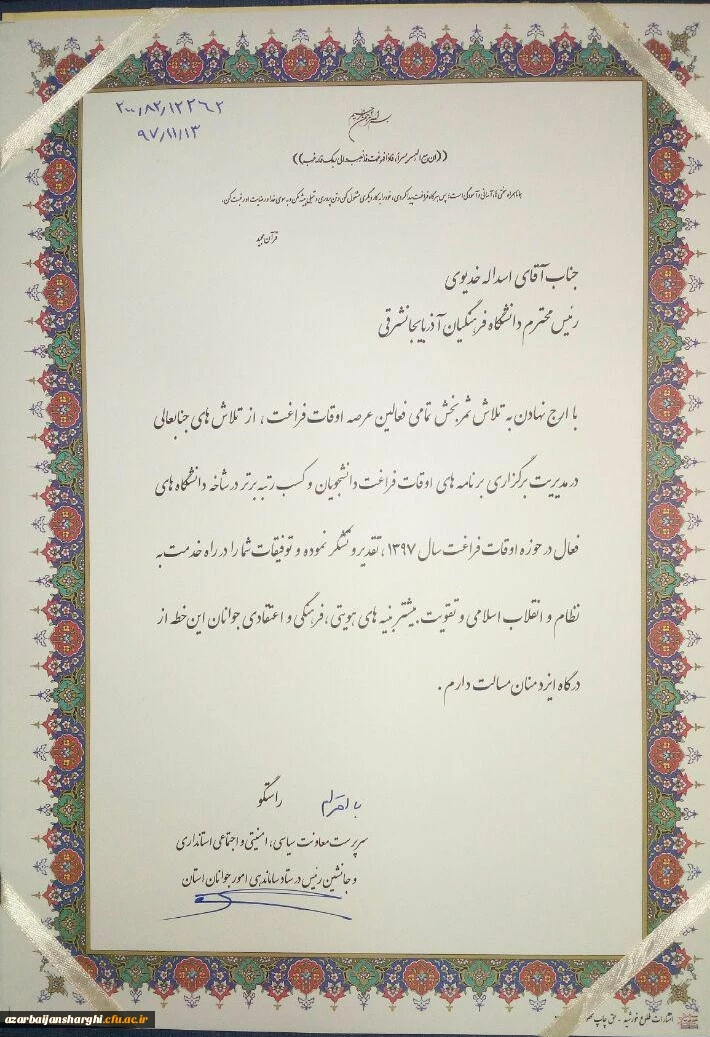 ۲۰۰/۸۲/۱۲۲۶۲
۹۷/۱۱/۱۳
بسم الله الرحمن الرحیم
((ان مع العسر یسرا، فاذا فرغت فانصب و الی ربک فارغب))
قرآن مجید
جناب آقای اسداله خدیوی
رئیس محترم دانشگاه فرهنگیان آذربایجانشرقی
با ارج نهادن به تلاش ثمربخش تمامی فعالین عرصه اوقات فراغت، از تلاش های جنابعالی
در مدیریت برگزاری برنامه های اوقات فراغت دانشجویان و کسب رتبه برتر در شاخه دانشگاه های
فعال در حوزه اوقات فراغت سال ۱۳۹۷، تقدیر و تشکر نموده و توفیقات شما را در راه خدمت به
نظام و انقلاب اسلامی و تقویت بیشتر بنیه های هویتی، فرهنگی و اعتقادی جوانان این خطه از
درگاه ایزد منان مسالت دارم.
با احترام راستگو
سرپرست معاونت سیاسی، امنیتی و اجتماعی استانداری
و جانشین رئیس در ستاد ساماندهی امور جوانان استان
انتشارات طلوع خورشید - حق چاپ
azarbaijansharghi.cfu.ac.ir